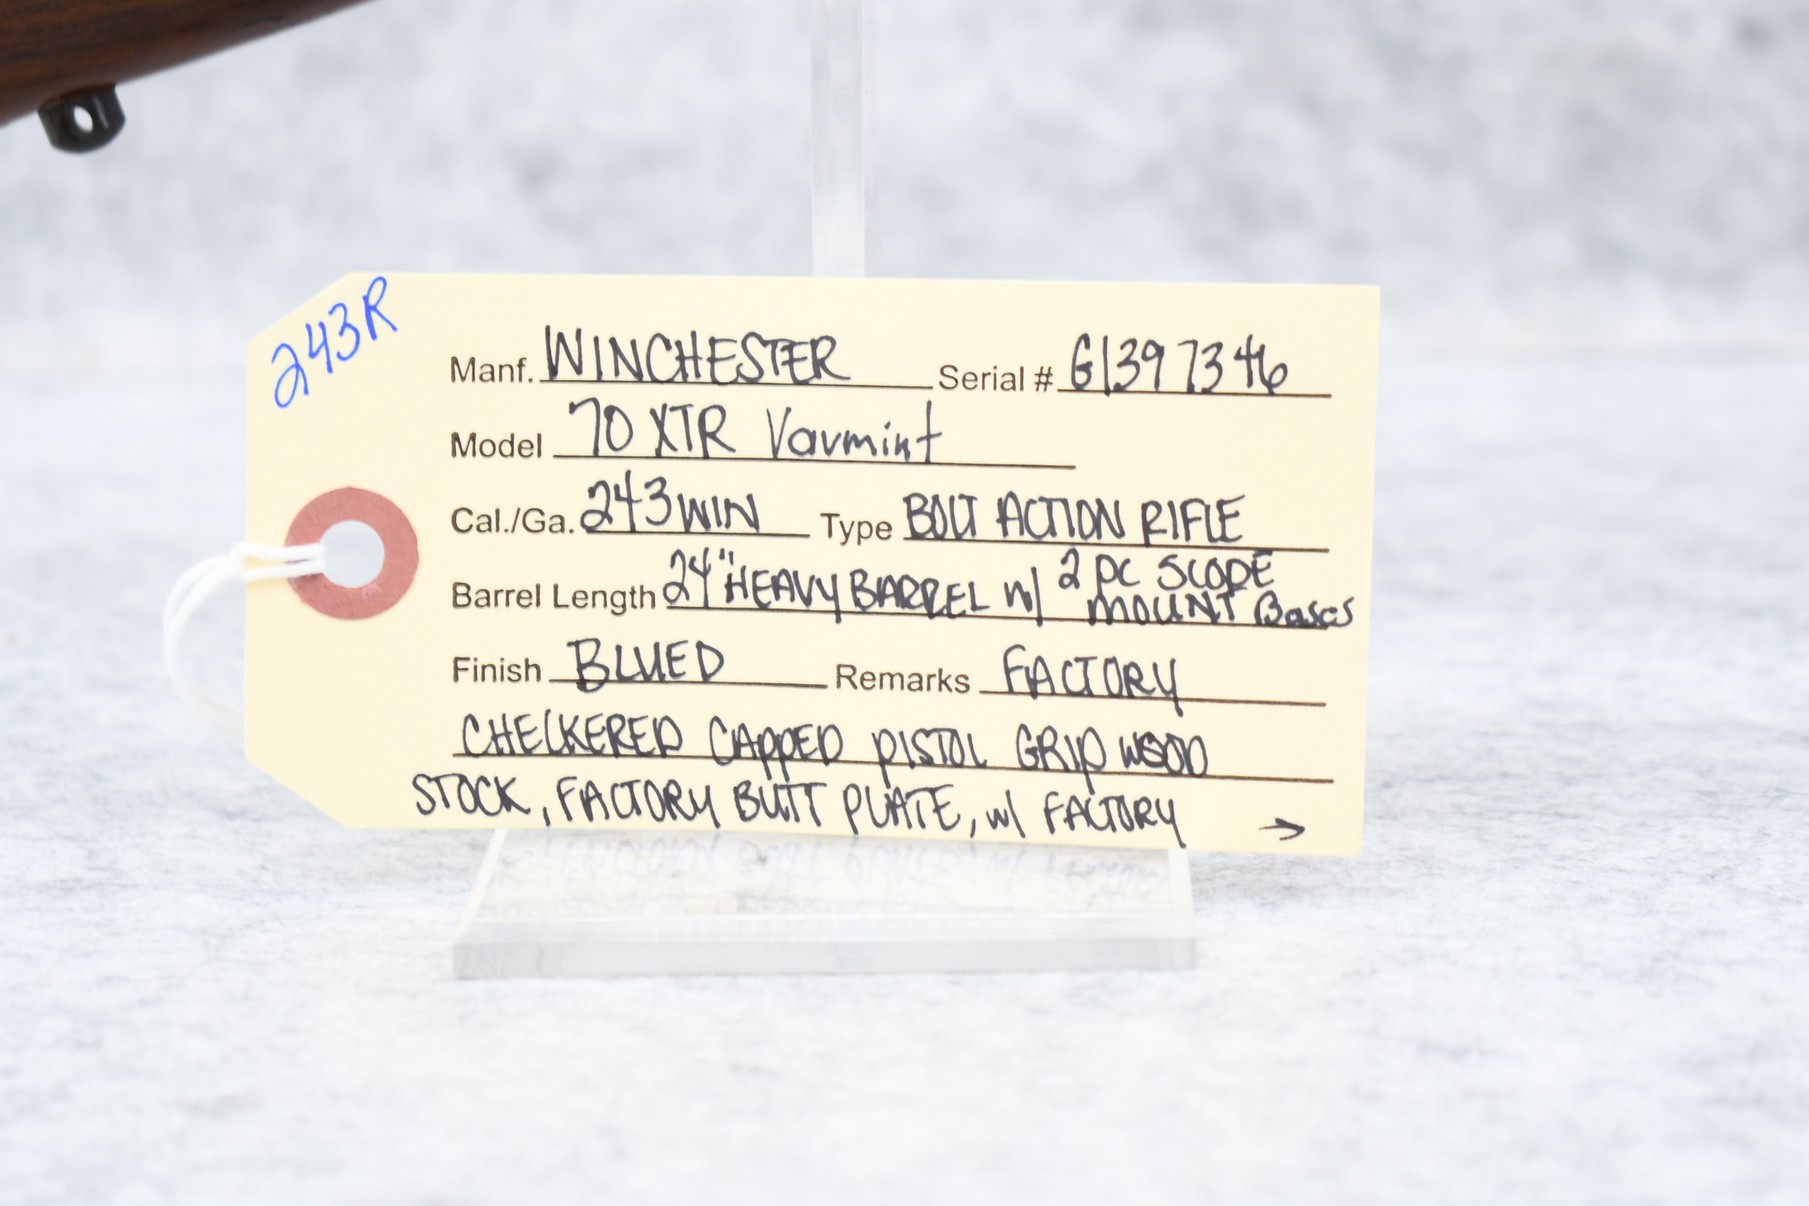 243R
Manf. WINCHESTER Serial # G1397346
Model 70 XTR Varmint
Cal./Ga. 243 WIN Type BOLT ACTION RIFLE
Barrel Length 24" HEAVY BARREL w/ 2 PC SCOPE
MOUNT Bases
Finish BLUED Remarks FACTORY
CHECKERED CAPPED PISTOL GRIP WOOD
STOCK, FACTORY BUTT PLATE, w/ FACTORY →